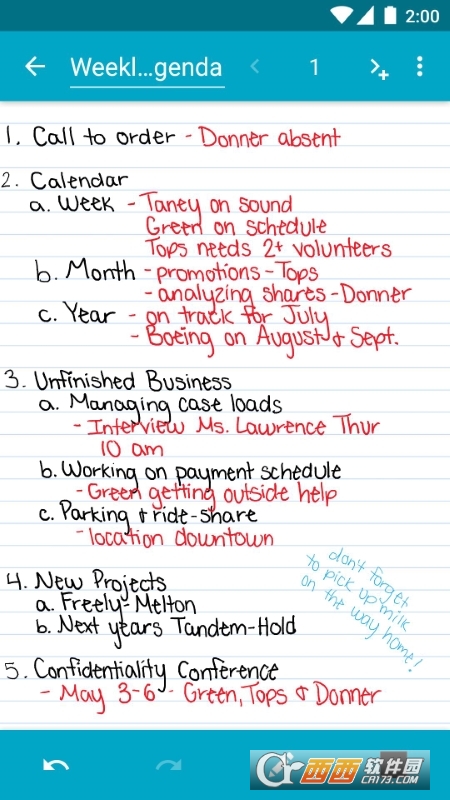 2:00
Weekl...genda
1
1. Call to order - Donner absent
2. Calendar
a. Week - Taney on sound
Green on schedule
Tops needs 2+ volunteers
b. Month - promotions - Tops
- analyzing shares - Donner
c. Year - on track for July
- Boeing on August & Sept.
3. Unfinished Business
a. Managing case loads
- Interview Ms. Lawrence Thur
10 am
b. Working on payment schedule
- Green getting outside help
c. Parking & ride-share
- location downtown
don't forget
to pick up milk
on the way home!
4. New Projects
a. Freely-Melton
b. Next years Tandem-Hold
5. Confidentiality Conference
- May 3-6 - Green, Tops & Donner
西西软件园
CR173.COM